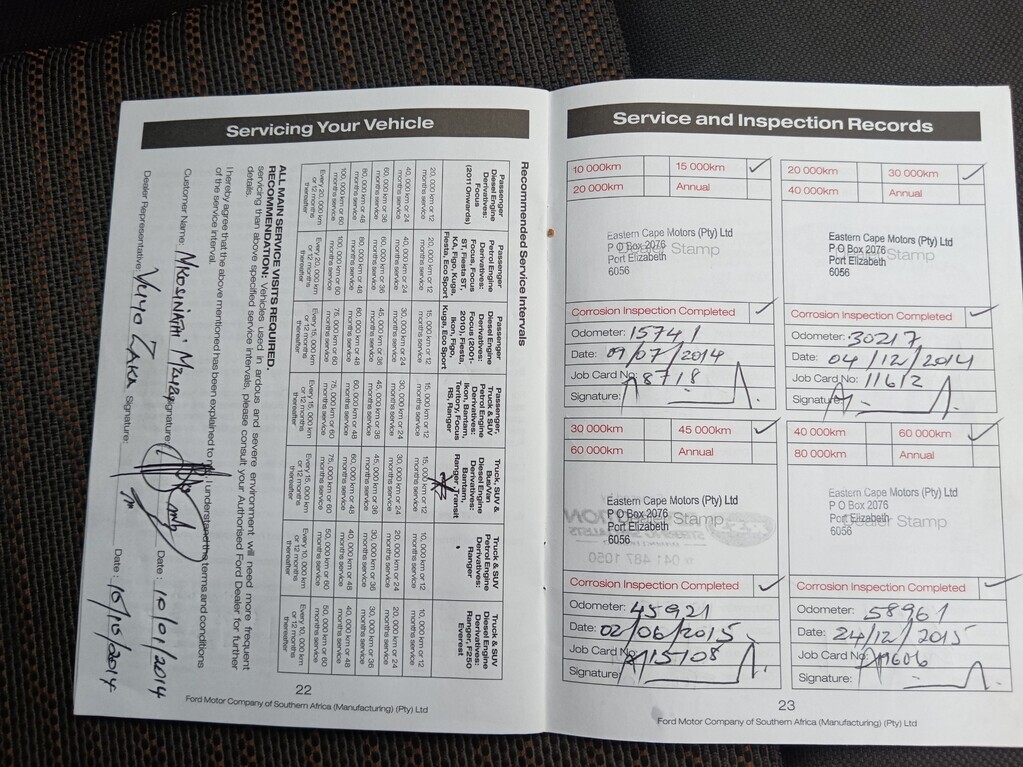 Servicing Your Vehicle
Recommended Service Intervals
Passenger
Diesel Engine
Derivatives:
Focus
(2011 Onwards)
20, 000 km or 12
months service
40, 000 km or 24
months service
60, 000 km or 36
months service
80, 000 km or 48
months service
100, 000 km or 60
months service
Every 20, 000 km
or 12 months
thereafter
Passenger
Petrol Engine
Derivatives:
Focus, Focus
ST, Fiesta ST,
KA, Figo, Kuga,
Fiesta, Eco Sport
20, 000 km or 12
months service
40, 000 km or 24
months service
60, 000 km or 36
months service
80, 000 km or 48
months service
100, 000 km or 60
months service
Every 20, 000 km
or 12 months
thereafter
Passenger
Diesel Engine
Derivatives:
Focus (2001-
2010), Fiesta,
Ikon, Figo,
Kuga, Eco Sport
15, 000 km or 12
months service
30, 000 km or 24
months service
45, 000 km or 36
months service
60, 000 km or 48
months service
75, 000 km or 60
months service
Every 15, 000 km
or 12 months
thereafter
Passenger,
Truck & SUV
Petrol Engine
Derivatives:
Ikon, Bantam,
Territory, Focus
RS, Ranger
15, 000 km or 12
months service
30, 000 km or 24
months service
45, 000 km or 36
months service
60, 000 km or 48
months service
75, 000 km or 60
months service
Every 15, 000 km
or 12 months
thereafter
Truck, SUV &
Bus/Van
Diesel Engine
Derivatives:
Bantam,
Ranger, Transit
15, 000 km or 12
months service
30, 000 km or 24
months service
45, 000 km or 36
months service
60, 000 km or 48
months service
75, 000 km or 60
months service
Every 15, 000 km
or 12 months
thereafter
Truck & SUV
Petrol Engine
Derivatives:
Ranger
10, 000 km or 12
months service
20, 000 km or 24
months service
30, 000 km or 36
months service
40, 000 km or 48
months service
50, 000 km or 60
months service
Every 10, 000 km
or 12 months
thereafter
Truck & SUV
Diesel Engine
Derivatives:
Ranger, F250
Everest
10, 000 km or 12
months service
20, 000 km or 24
months service
30, 000 km or 36
months service
40, 000 km or 48
months service
50, 000 km or 60
months service
Every 10, 000 km
or 12 months
thereafter
ALL MAIN SERVICE VISITS REQUIRED.
RECOMMENDATION: Vehicles used in ardous and severe environment will need more frequent
servicing than above specified service intervals, please consult your Authorised Ford Dealer for further
details.
I hereby agree that the above mentioned has been explained to me. I understand the terms and conditions
of the service interval.
Customer Name: NKOSINATHI Signature: Date: 10/01/2014
Dealer Representative: VUYO ZAKA Signature: Date:
22
Ford Motor Company of Southern Africa (Manufacturing) (Pty) Ltd
Service and Inspection Records
10 000km 15 000km
20 000km Annual
Eastern Cape Motors (Pty) Ltd
P O Box 2076
Port Elizabeth
6056
Dealer Stamp
Corrosion Inspection Completed
Odometer: 15741
Date: 09/07/2014
Job Card No: 8718
Signature:
20 000km 30 000km
40 000km Annual
Eastern Cape Motors (Pty) Ltd
P O Box 2076
Port Elizabeth
6056
Dealer Stamp
Corrosion Inspection Completed
Odometer: 30217
Date: 04/12/2014
Job Card No: 11612
Signature:
30 000km 45 000km
60 000km Annual
Eastern Cape Motors (Pty) Ltd
P O Box 2076
Port Elizabeth
6056
Dealer Stamp
Corrosion Inspection Completed
Odometer: 45921
Date: 02/06/2015
Job Card No: 15108
Signature:
40 000km 60 000km
80 000km Annual
Eastern Cape Motors (Pty) Ltd
P O Box 2076
Port Elizabeth
6056
Dealer Stamp
Corrosion Inspection Completed
Odometer: 58961
Date: 24/12/2015
Job Card No: 19606
Signature:
23
Ford Motor Company of Southern Africa (Manufacturing) (Pty) Ltd